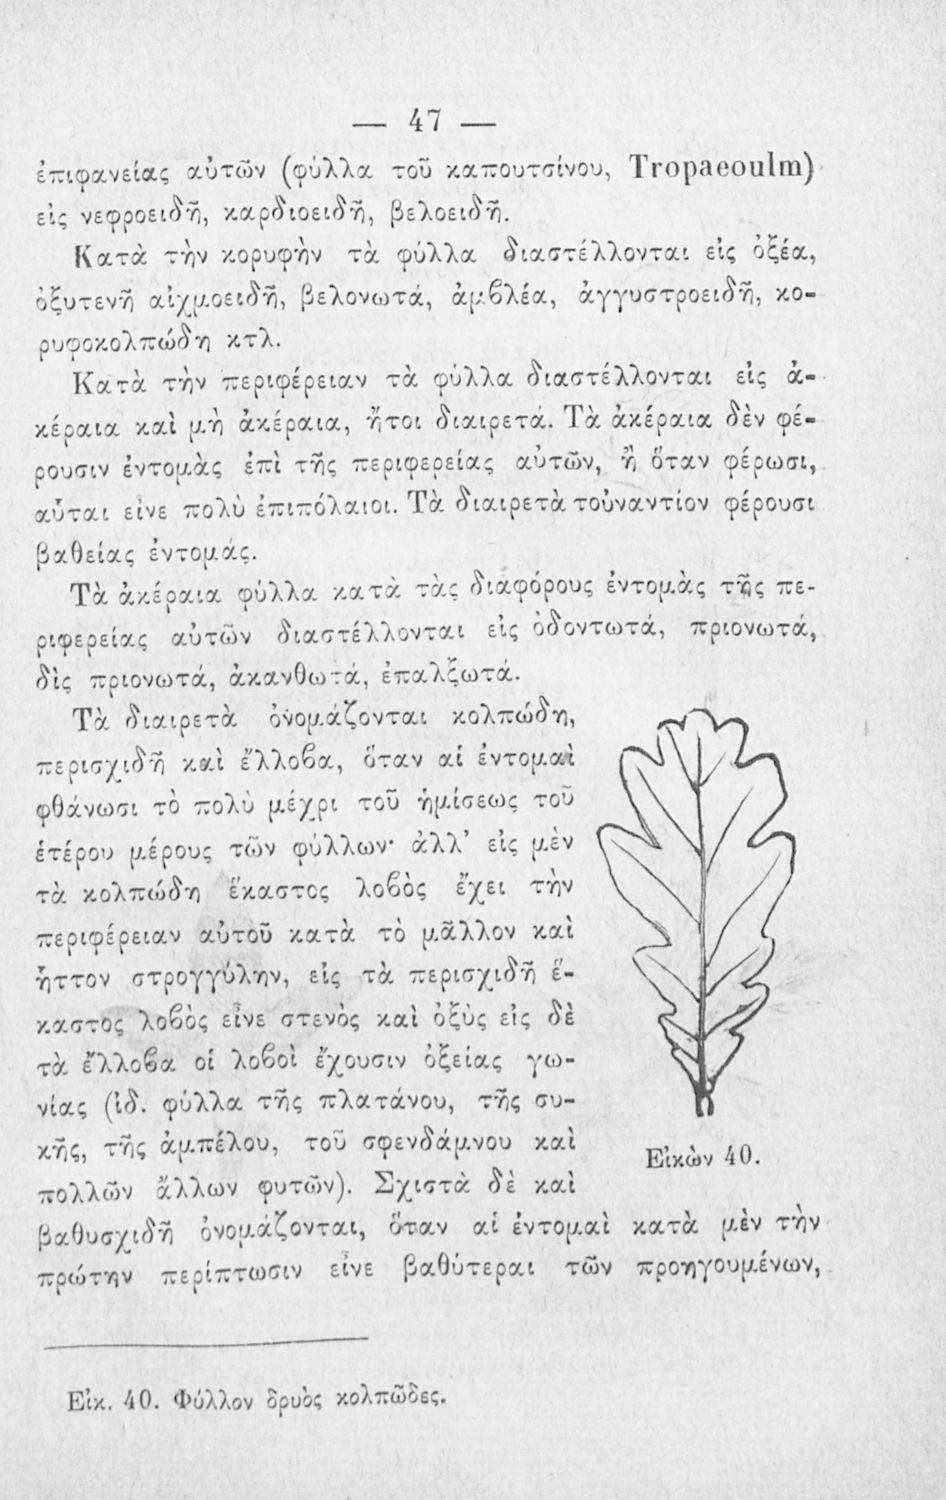 — 47 —
ἐπιφανείας αὐτῶν (φύλλα τοῦ καπουτσίνου, Tropaeoulm)
εἰς νεφροειδῆ, καρδιοειδῆ, βελοειδῆ.
Κατὰ τὴν κορυφὴν τὰ φύλλα διαστέλλονται εἰς ὀξέα,
ὀξυτενῆ αἰχμοειδῆ, βελονωτά, ἀμβλέα, ἀγγυστροειδῆ, κο-
ρυφοκολπώδη κτλ.
Κατὰ τὴν περιφέρειαν τὰ φύλλα διαστέλλονται εἰς ἀ-
κέραια καὶ μὴ ἀκέραια, ἤτοι διαιρετά. Τὰ ἀκέραια δὲν φέ-
ρουσιν ἐντομὰς ἐπὶ τῆς περιφερείας αὐτῶν, ἢ ὅταν φέρωσι,
αὗται εἶνε πολὺ ἐπιπόλαιοι. Τὰ διαιρετὰ τοὐναντίον φέρουσι
βαθείας ἐντομάς.
Τὰ ἀκέραια φύλλα κατὰ τὰς διαφόρους ἐντομὰς τῆς πε-
ριφερείας αὐτῶν διαστέλλονται εἰς ὀδοντωτά, πριονωτά,
δὶς πριονωτά, ἀκανθωτά, ἐπαλξωτά.
Τὰ διαιρετὰ ὀνομάζονται κολπώδη,
περισχιδῆ καὶ ἔλλοβα, ὅταν αἱ ἐντομαὶ
φθάνωσι τὸ πολὺ μέχρι τοῦ ἡμίσεως τοῦ
ἑτέρου μέρους τῶν φύλλων· ἀλλ’ εἰς μὲν
τὰ κολπώδη ἕκαστος λοβὸς ἔχει τὴν
περιφέρειαν αὐτοῦ κατὰ τὸ μᾶλλον καὶ
ἧττον στρογγύλην, εἰς τὰ περισχιδῆ ἕ-
καστος λοβὸς εἶνε στενὸς καὶ ὀξὺς εἰς δὲ
τὰ ἔλλοβα οἱ λοβοὶ ἔχουσιν ὀξείας γω-
νίας (ἰδ. φύλλα τῆς πλατάνου, τῆς συ-
κῆς, τῆς ἀμπέλου, τοῦ σφενδάμνου καὶ
πολλῶν ἄλλων φυτῶν). Σχιστὰ δὲ καὶ
βαθυσχιδῆ ὀνομάζονται, ὅταν αἱ ἐντομαὶ κατὰ μὲν τὴν
πρώτην περίπτωσιν εἶνε βαθύτεραι τῶν προηγουμένων,
Εἰκὼν 40.
Εἰκ. 40. Φύλλον δρυὸς κολπῶδες.